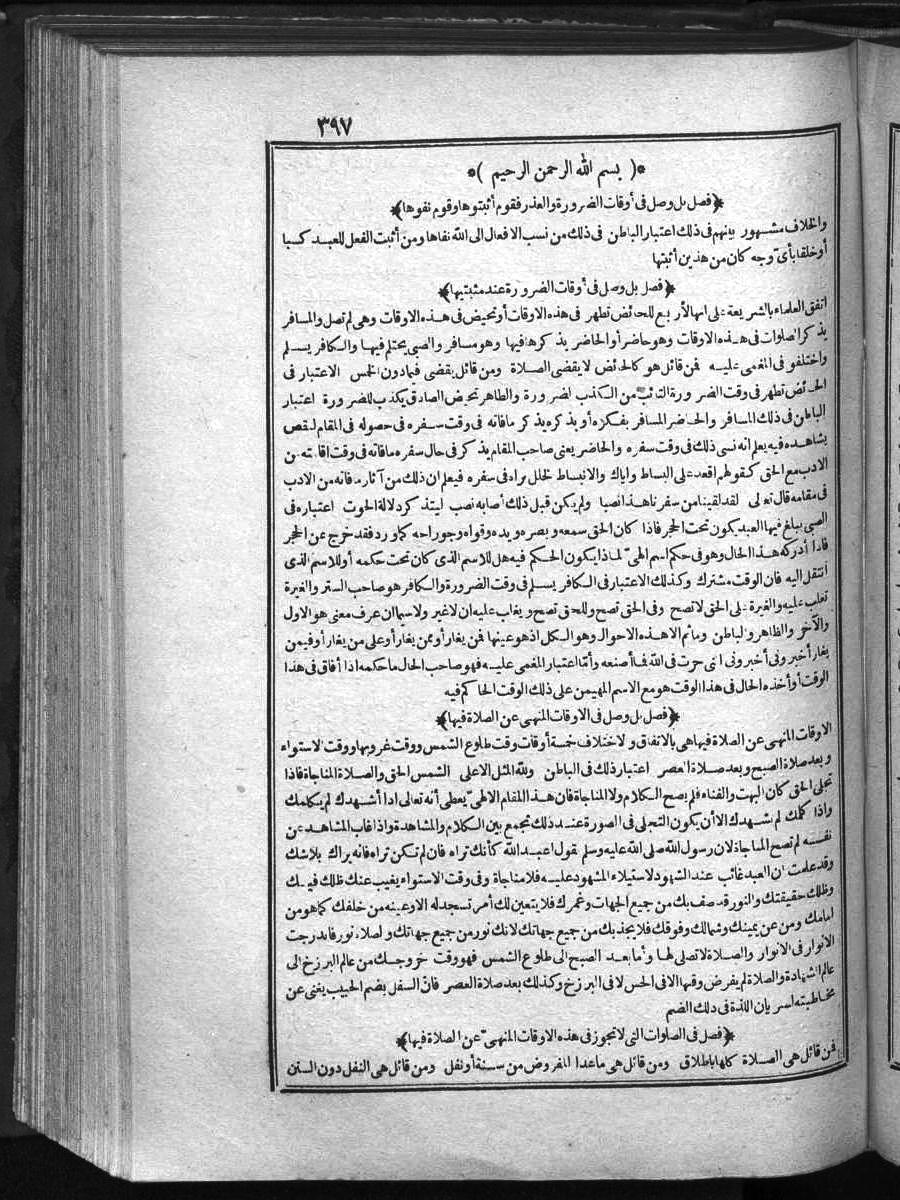 ٣٩٧
*( بسم الله الرحمن الرحيم )*
﴿فصل بل وصل فى أوقات الضرورة والعذر فقوم أثبتوها وقوم نفوها﴾
والخلاف مشهور بينهم فى ذلك اعتبار الباطن فى ذلك من نسب الافعال الى الله نفاها ومن أثبت الفعل للعبد كسبا
أو خلقا بأى وجه كان من هذين أثبتها
﴿فصل بل وصل فى أوقات الضرورة عند مثبتيها﴾
اتفق العلماء بالشريعة على انها لأربع للحائض تطهر فى هذه الاوقات أو تحيض فى هذه الاوقات وهى لم تصل والمسافر
يذكر الصلوات فى هذه الاوقات وهو حاضر أو الحاضر يذكرها فيها وهو مسافر والصبى يحتلم فيها والكافر يسلم
واختلفو فى المغمى عليه فمن قائل هو كالحائض لا يقضى الصلاة ومن قائل يقضى فيما دون الخمس الاعتبار فى
الحائض تطهر فى وقت الضرورة التائب من الكذب لضرورة والطاهر تحيض الصادق يكذب للضرورة اعتبار
الباطن فى ذلك المسافر والحاضر المسافر بفكره أو بذكره يذكر مافاته فى وقت سفره فى حصوله فى المقام لنقص
يشاهده فيه يعلم انه نسى ذلك فى وقت سفره والحاضر يعنى صاحب المقام يذكر فى حال سفره مافاته فى وقت اقامته من
الادب مع الحق كقولهم اقعد على البساط واياك والانبساط لخلل يراه فى سفره فيعلم ان ذلك من آثار مافاته من الادب
فى مقامه قال تعالى لقد لقينا من سفرنا هذا نصبا ولم يكن قبل ذلك أصابه نصب ليتذكر دلالة الحوت اعتباره فى
الصبى يبلغ فيها العبد يكون تحت الحجر فاذا كان الحق سمعه وبصره ويده وقواه وجوارحه كما ورد فقد خرج عن الحجر
فاذا أدركه هذا الحال وهو فى حكم اسم الهىّ لماذا يكون الحكم فيه هل للاسم الذى كان تحت حكمه أو للاسم الذى
انتقل اليه فان الوقت مشترك وكذلك الاعتبار فى الكافر يسلم فى وقت الضرورة والكافر هو صاحب الستر والغيرة
تغلب عليه والغيرة على الحق لا تصح وفى الحق تصح وللحق تصح ويغاب عليه ان لا غير ولاسيما ان عرف معنى هو الاول
والآخر والظاهر والباطن وما ثم الا هذه الاحوال وهو الكل اذ هو عينها فمن يغار أو ممن يغار أو على من يغار أو فيمن
يغار أخبرونى أخبرونى اننى حرت فى الله فما أصنعه وأما اعتبار المغمى عليه فهو صاحب الحال ما حكمه اذا أفاق فى هذا
الوقت أو أخذه الحال فى هذا الوقت هو مع الاسم المهيمن على ذلك الوقت الحاكم فيه
﴿فصل بل وصل فى الاوقات المنهى عن الصلاة فيها﴾
الاوقات المنهى عن الصلاة فيها هى بالاتفاق والاختلاف خمسة أوقات وقت طلوع الشمس ووقت غروبها ووقت الاستواء
وبعد صلاة الصبح وبعد صلاة العصر اعتبار ذلك فى الباطن ولله المثل الاعلى الشمس الحق والصلاة المناجاة فاذا
تجلى الحق كان البهت والفناء فلم يصح الكلام ولا المناجاة فان هذا المقام الالهىّ يعطى أنه تعالى اذا أشهدك لم يكلمك
واذا كلمك لم يشهدك الا أن يكون التجلى فى الصورة عند ذلك تجمع بين الكلام والمشاهدة واذا غاب المشاهد عن
نفسه لم تصح المناجاة لان رسول الله صلى الله عليه وسلم يقول اعبد الله كأنك تراه فان لم تكن تراه فانه يراك بلاشك
وقد علمت ان العبد غائب عند الشهود لاستيلاء المشهود عليه فلا مناجاة وفى وقت الاستواء يغيب عنك ظلك فيك
وظلك حقيقتك والنور قد صف بك من جميع الجهات وغمرك فلا يتعين لك أمر تسجد له الا وعينه من خلفك كما هو من
أمامك ومن عن يمينك وشمالك وفوقك فلا يجذبك من جميع جهاتك لانك نور من جميع جهاتك والصلاة نور فاندرجت
الانوار فى الانوار والصلاة لا تصلى لها وأما بعد الصبح الى طلوع الشمس فهو وقت خروجك من عالم البرزخ الى
عالم الشهادة والصلاة لم يفرض وقتها الا فى الحس لا فى البرزخ وكذلك بعد صلاة العصر فان السفل بضم الحبيب يغنى عن
مخاطبته لسريان اللذة فى ذلك الضم
﴿فصل فى الصلوات التى لا تجوز فى هذه الاوقات المنهىّ عن الصلاة فيها﴾
فمن قائل هى الصلاة كلها باطلاق ومن قائل هى ماعدا المفروض من سنة أو نفل ومن قائل هى النفل دون السنن